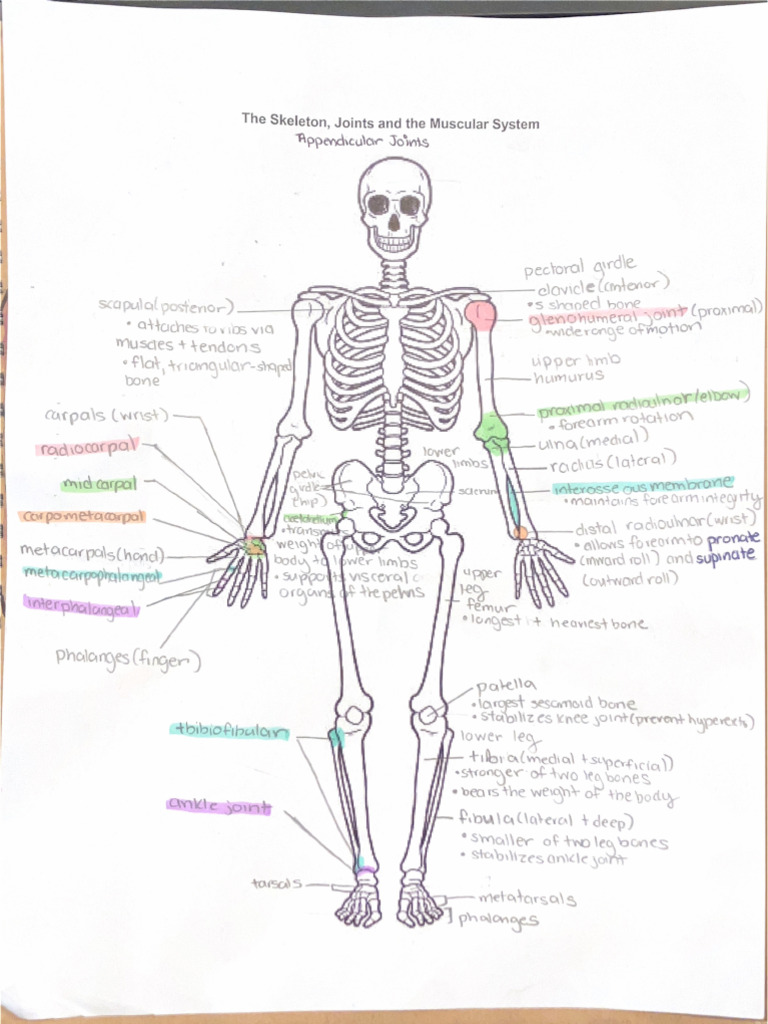 The Skeleton, Joints and the Muscular System
Appendicular Joints
scapula (posterior)
• attaches to ribs via
muscles + tendons
• flat, triangular-shaped
bone
carpals (wrist)
radiocarpal
mid carpal
carpometacarpal
metacarpals (hand)
metacarpophalangeal
interphalangeal
phalanges (finger)
pectoral girdle
clavicle (anterior)
• s shaped bone
glenohumeral joint (proximal)
• wide range of motion
upper limb
humurus
proximal radioulnar (elbow)
• forearm rotation
ulna (medial)
radius (lateral)
interosseous membrane
• maintains forearm integrity
distal radioulnar (wrist)
• allows forearm to pronate
(inward roll) and supinate
(outward roll)
lower
limbs
sacrum
pelvic
girdle
(hip)
acetabulum
weight of upper
body to lower limbs
• supports visceral
organs of the pelvis
upper
leg
femur
• longest + heaviest bone
patella
• largest sesamoid bone
• stabilizes knee joint (prevent hyperexts)
lower leg
tibia (medial + superficial)
• stronger of two leg bones
• bears the weight of the body
fibula (lateral + deep)
• smaller of two leg bones
• stabilizes ankle joint
tbibiofibular
ankle joint
tarsals
metatarsals
phalanges